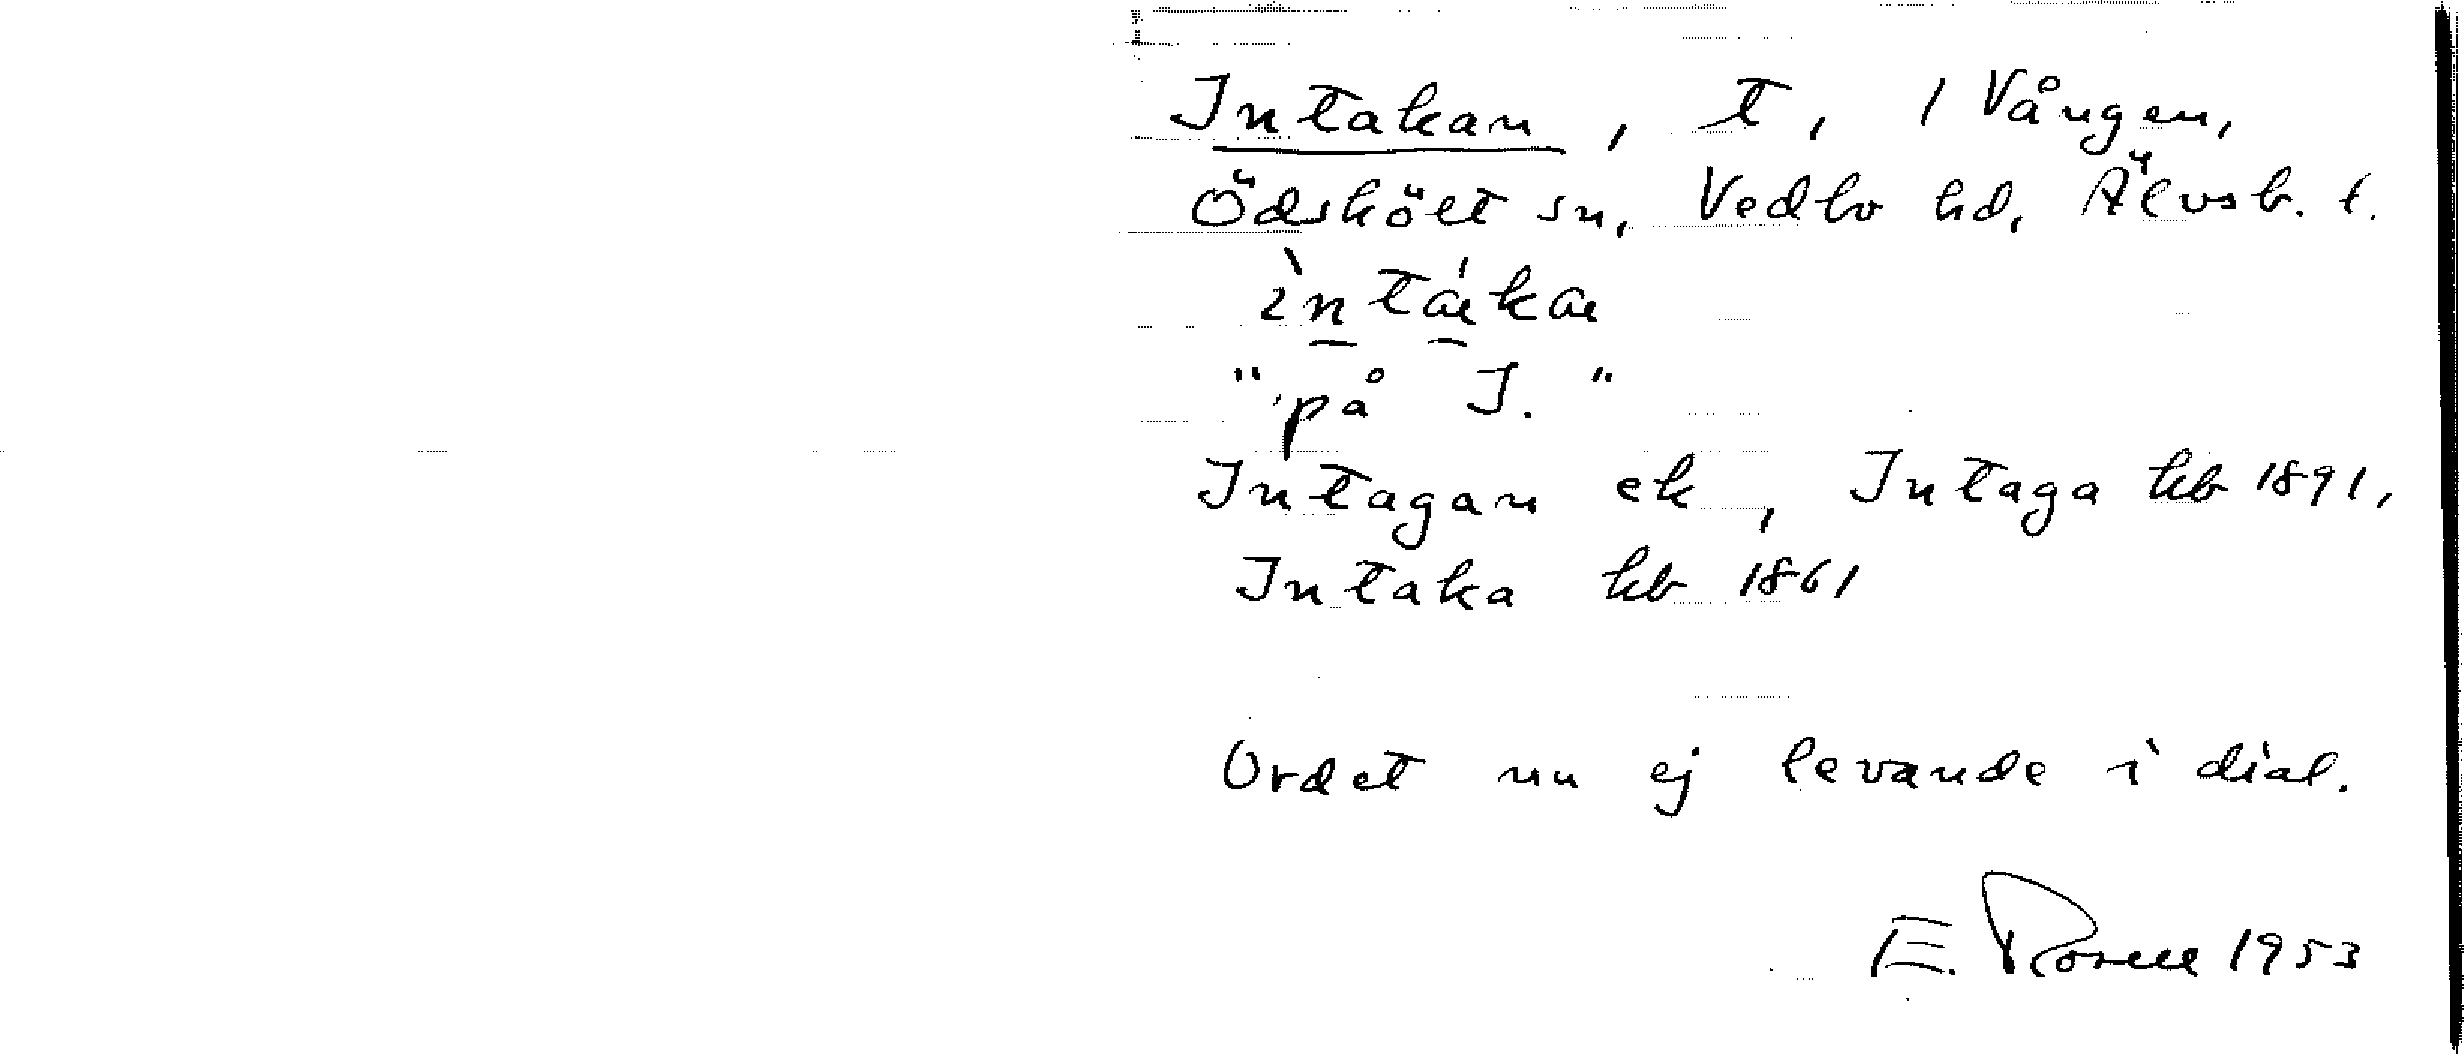 Intakan, t, 1 Vången,
Ödsköлt sn, Vedbo hd, Älvsb. l.
ìntákа
"på I."
Intagan ek, Intaga kb 1891,
Intaka kb 1861
Ordet nu ej levande i dial.
E. Rosell 1953